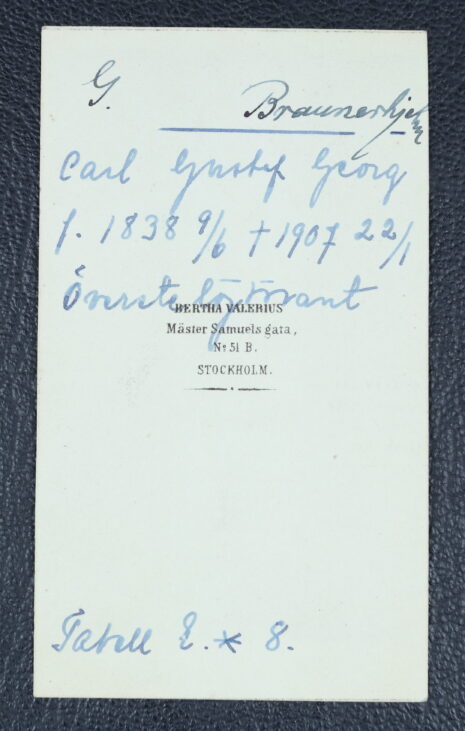 G. Braunerhjelm
Carl Gustef Georg
f. 1838 9/6 † 1907 22/1
Överstelöjtnant
BERTHA VALERIUS
Mäster Samuels gata,
No 51 B.
STOCKHOLM.
Tabell 2. * 8.